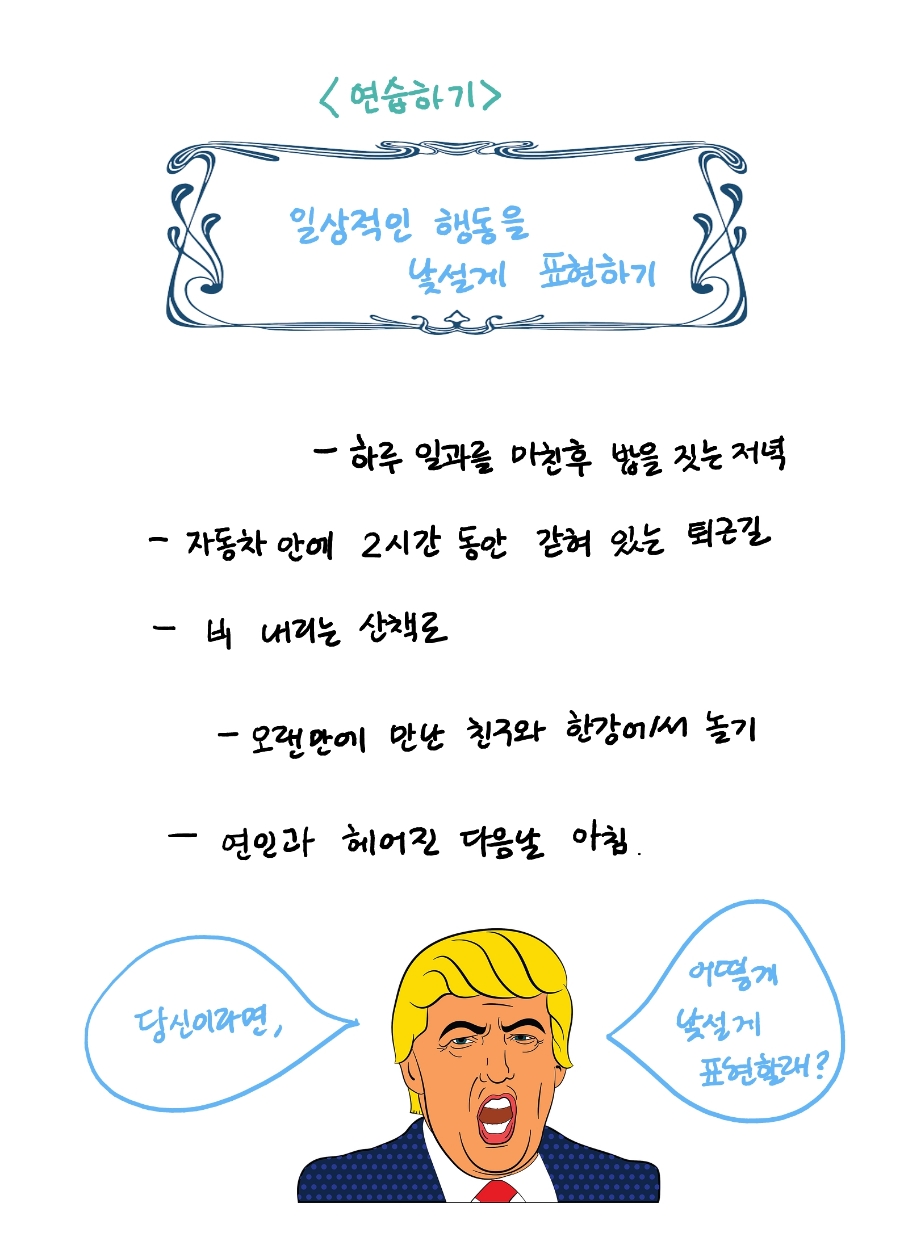 <연습하기>
일상적인 행동을
낯설게 표현하기
- 하루 일과를 마친후 밥을 짓는 저녁
- 자동차 안에 2시간 동안 갇혀 있는 퇴근길
- 비 내리는 산책로
- 오랜만에 만난 친구와 한강에서 놀기
- 연인과 헤어진 다음날 아침.
당신이라면,
어떻게
낯설게
표현할래?